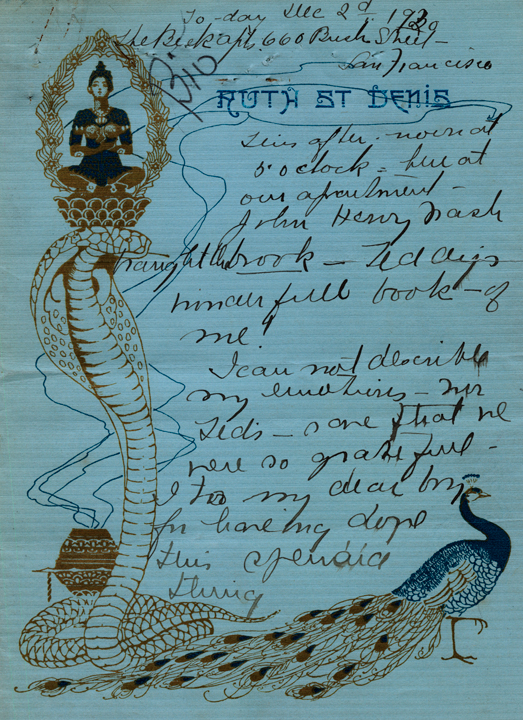 To-day Dec 2d 1920
The Beckapt. 660 Bush Street-
San Francisco
RUTH ST DENIS
This after-noon at
5 o clock - here at
our apartment -
John Henry Nash
braught the book - Teddys
wonderfull book - of
me!
I can not describe
my emotions - nor
Teds - save that we
were so grateful -
I to my dear boy
for having done
this splendid
thing